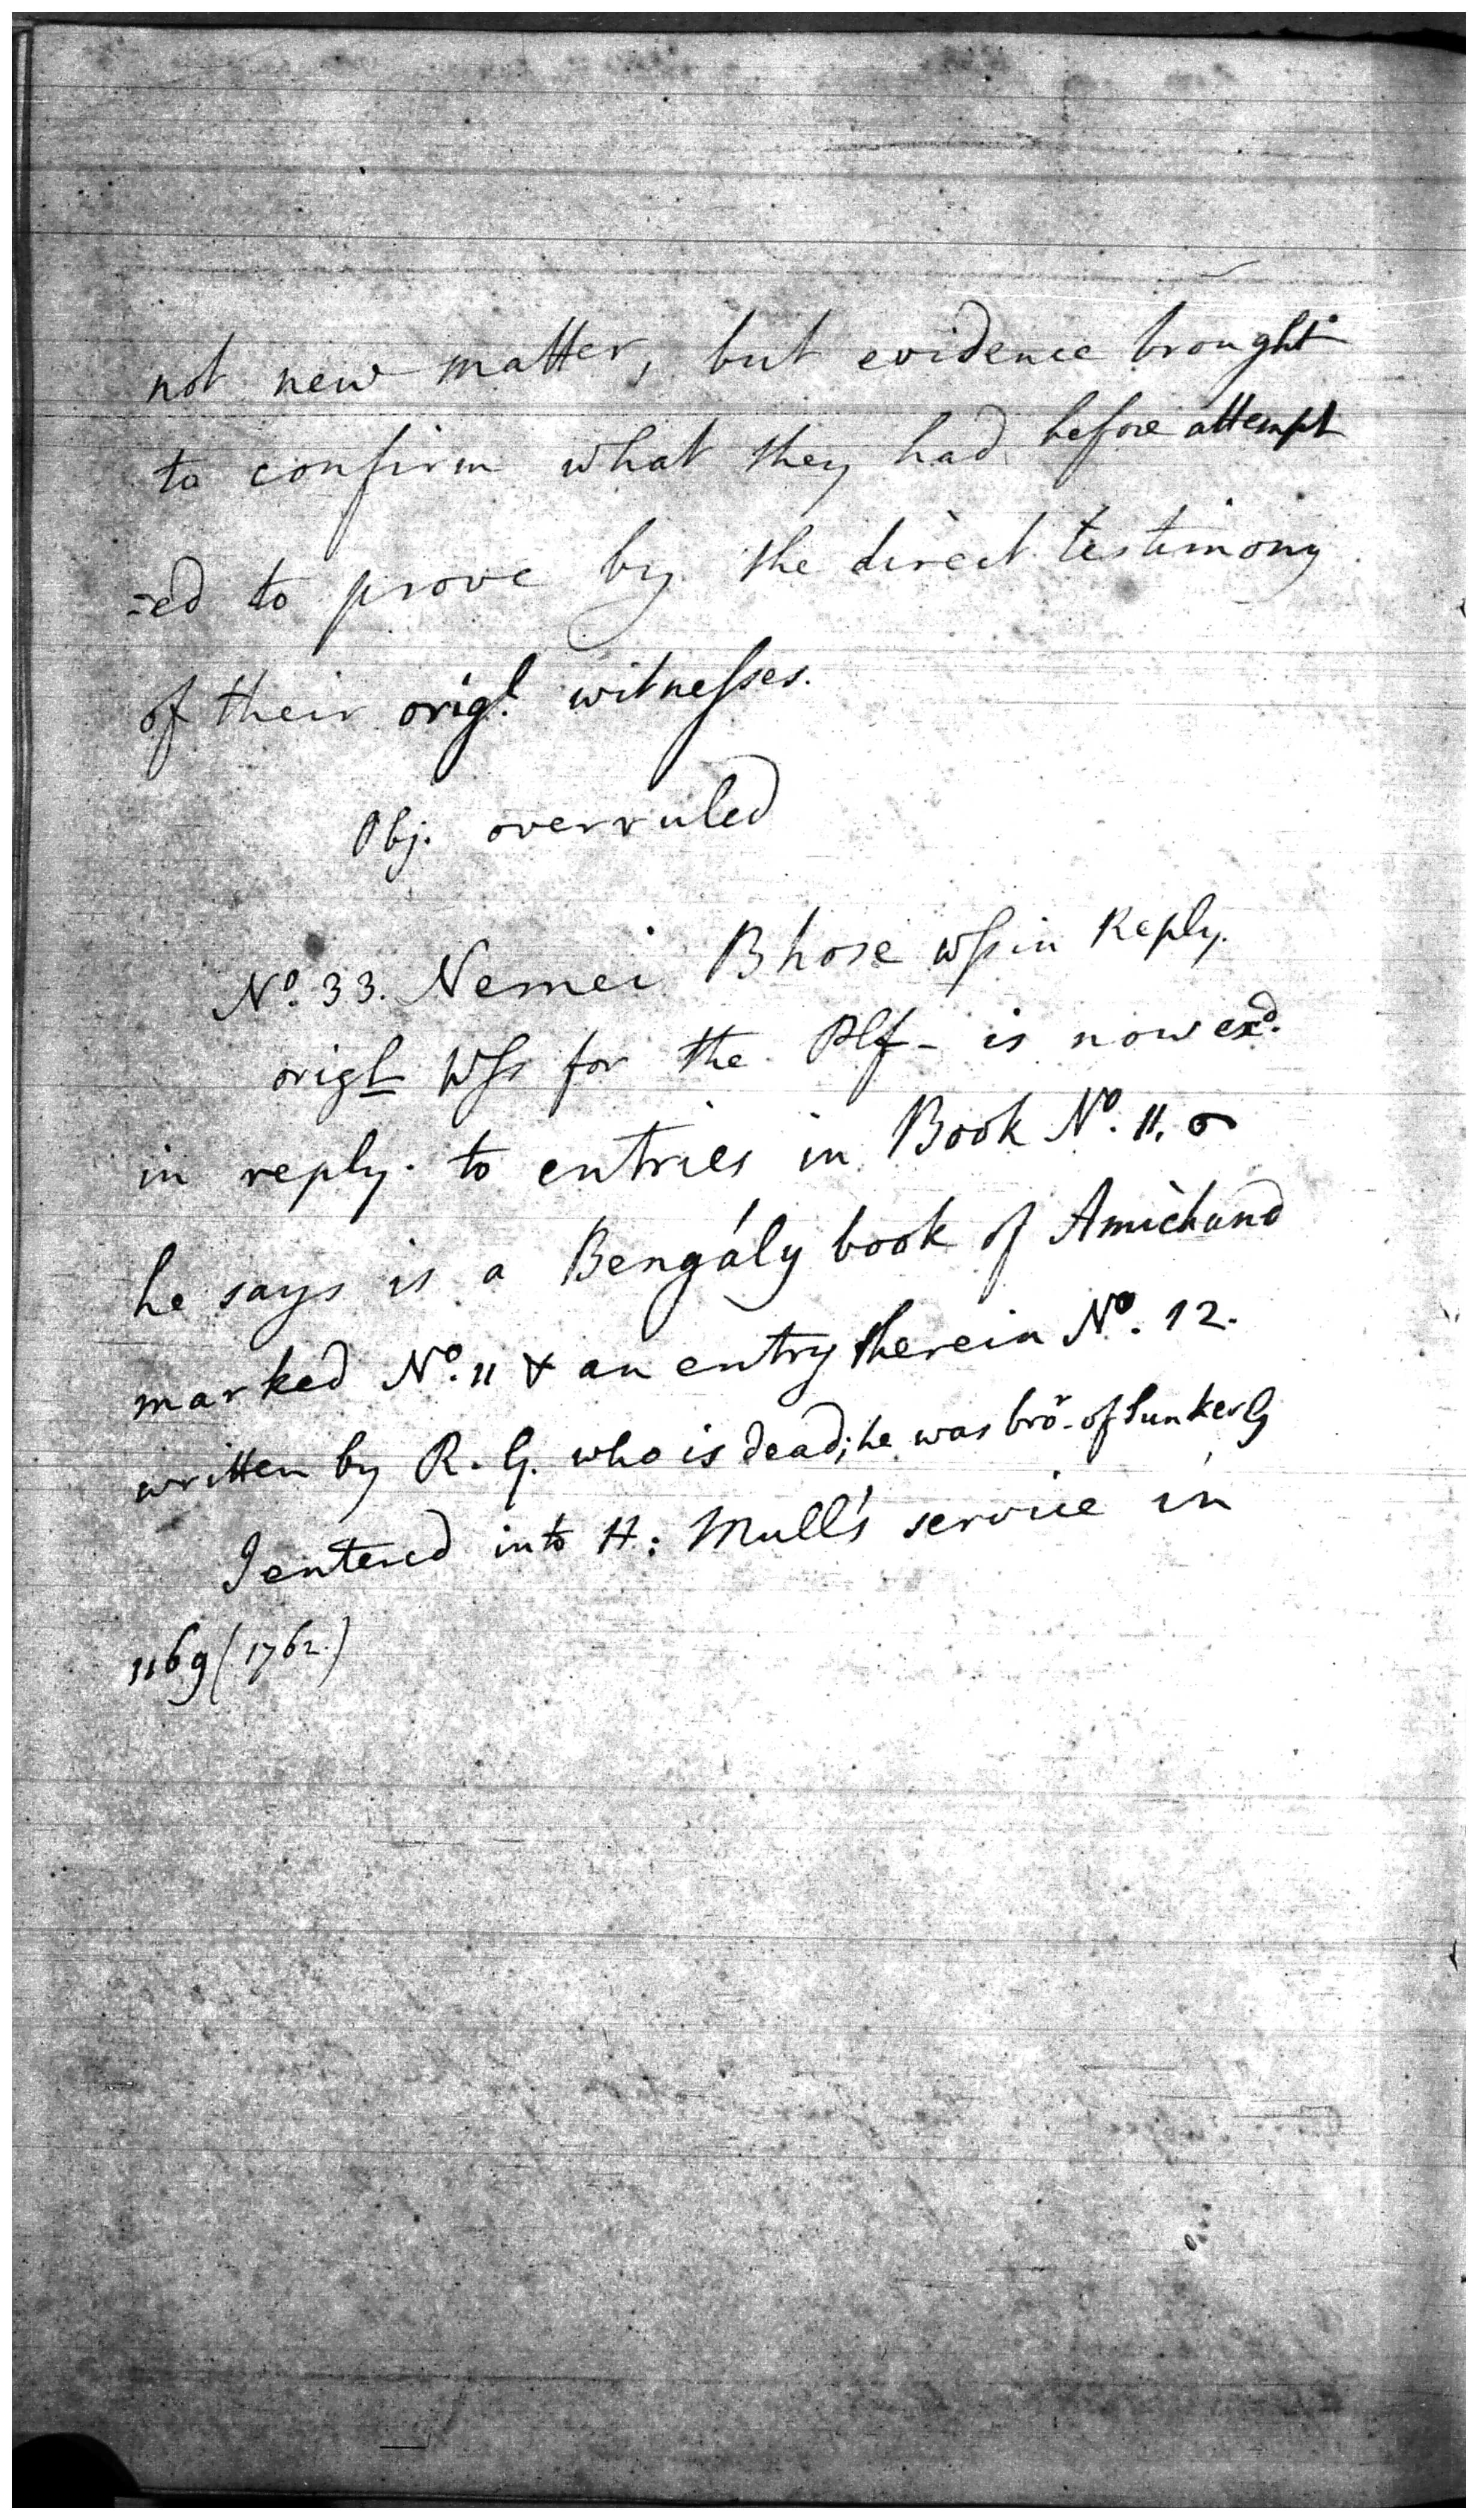 not new matter, but evidence brought
to confirm what they had before attempt
=ed to prove by the direct testimony
of their origl. witneſses.
Obj. overruled
No. 33. Nemei Bhose wſs in Reply.
origl Wſs for the Plf - is now exd.
in reply. to entries in Book No. 11.
he says is a Bengály book of Amichund
marked No. 11 & an entry therein No. 12.
written by R. G. who is dead; he was bror. of Sunker G
I entered into H: Mull's service in
1169 (1762.)